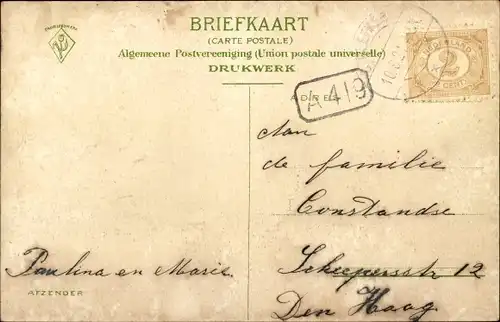 BRIEFKAART
(CARTE POSTALE)
Algemeene Postvereeniging (Union postale universelle)
DRUKWERK
NEDERLAND
2
CENT
A 419
ADRES
Aan
de familie
Constandse
Scheepersstr 12
Den Haag
Paulina en Marie
AFZENDER